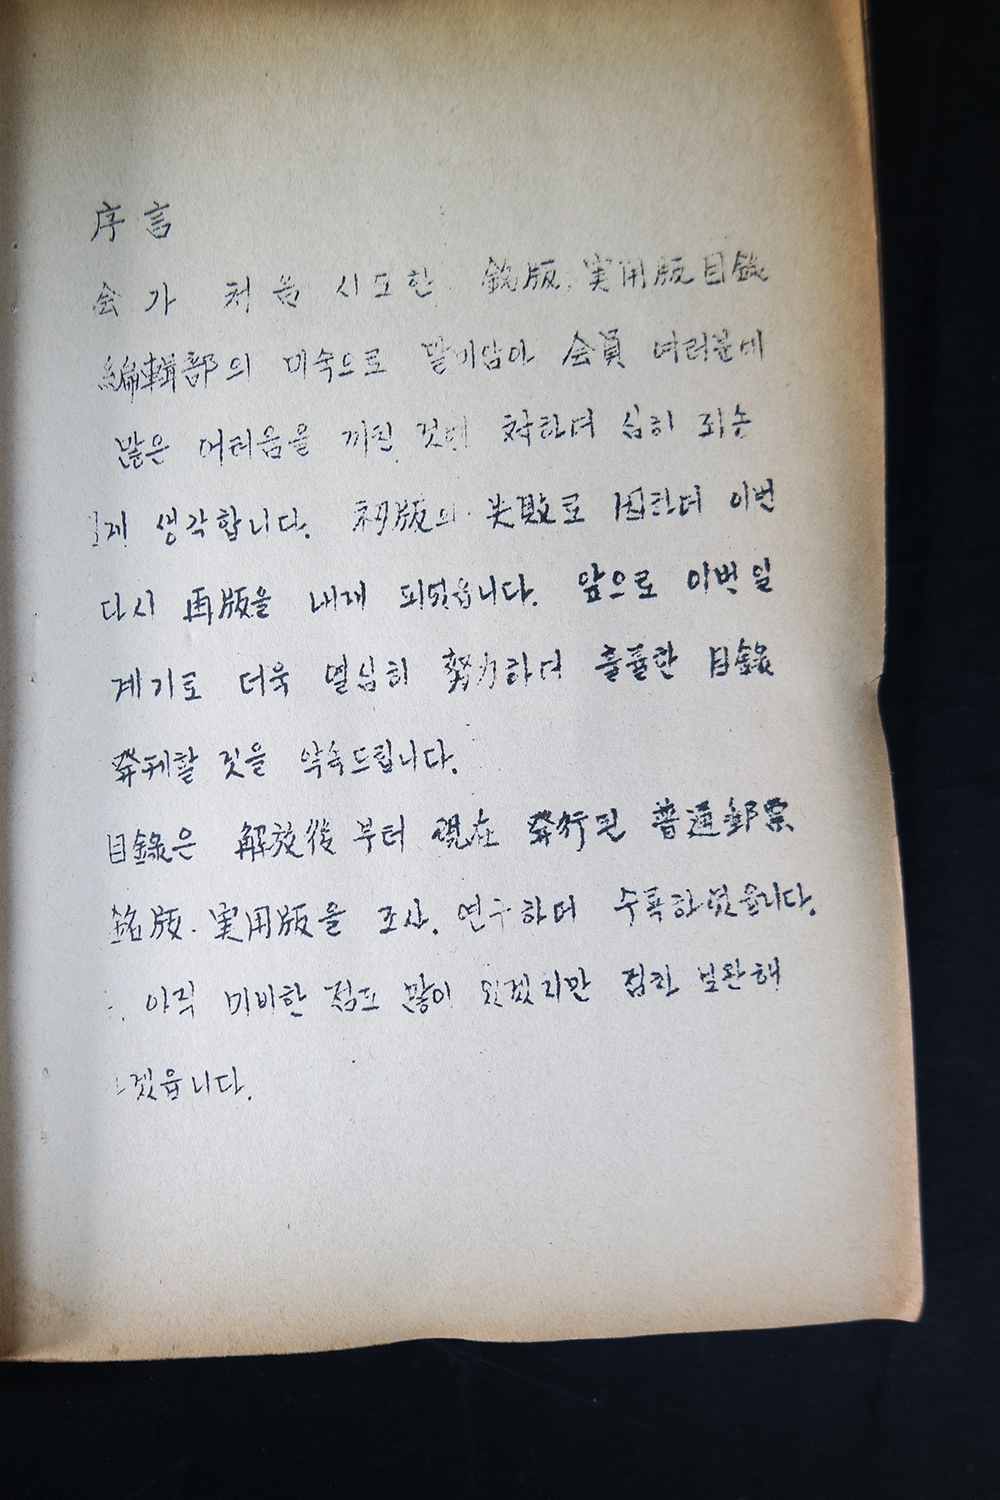 序言
会가 처음 시도한 銘版, 実用版目錄
編輯部의 미숙으로 말미암아 会員 여러분에
많은 어려움을 끼친 것에 対하여 심히 죄송
게 생각합니다. 初版의 失敗로 因하여 이번
다시 再版을 내게 되었읍니다. 앞으로 이번 일
계기로 더욱 열심히 努力하여 훌륭한 目錄
発刊할 것을 약속드립니다.
目錄은 解放後 부터 現在 発行된 普通郵票
銘版. 実用版을 조사. 연구하여 수록하였읍니다.
아직 미비한 점도 많이 있겠지만 점차 보완해
겠읍니다.